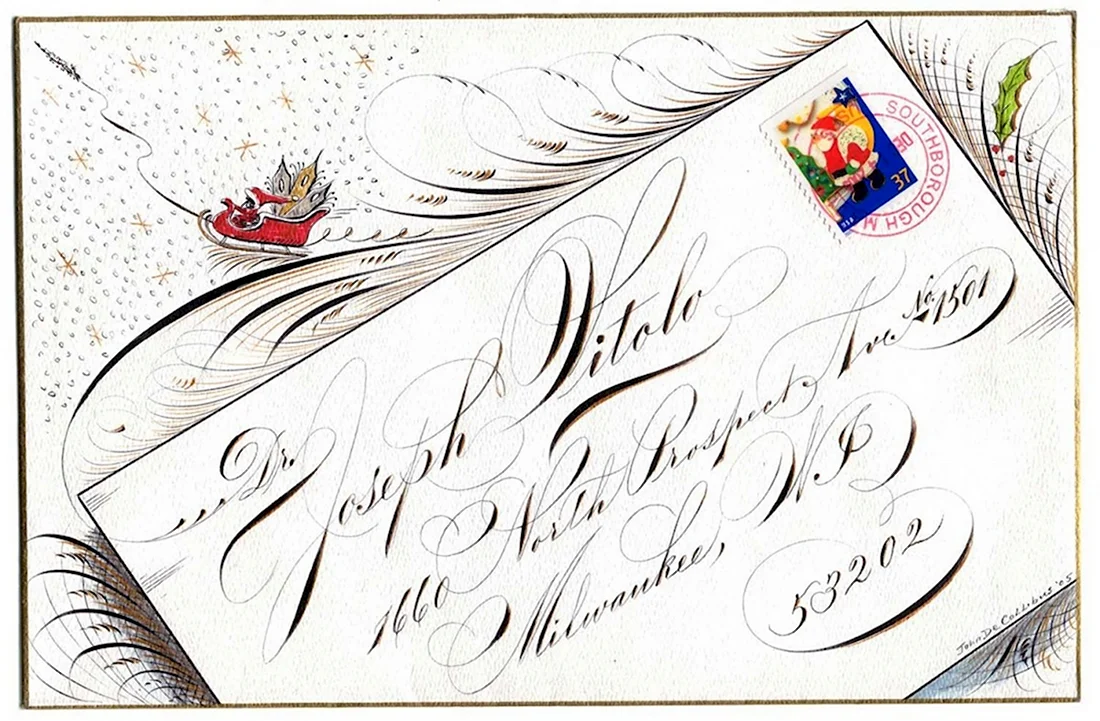 37
SOUTHBOROUGH M
30
Dr. Joseph Vitolo
1660 North Prospect Ave. No. 1501
Milwaukee, WI
53202
John DeCollibus '05